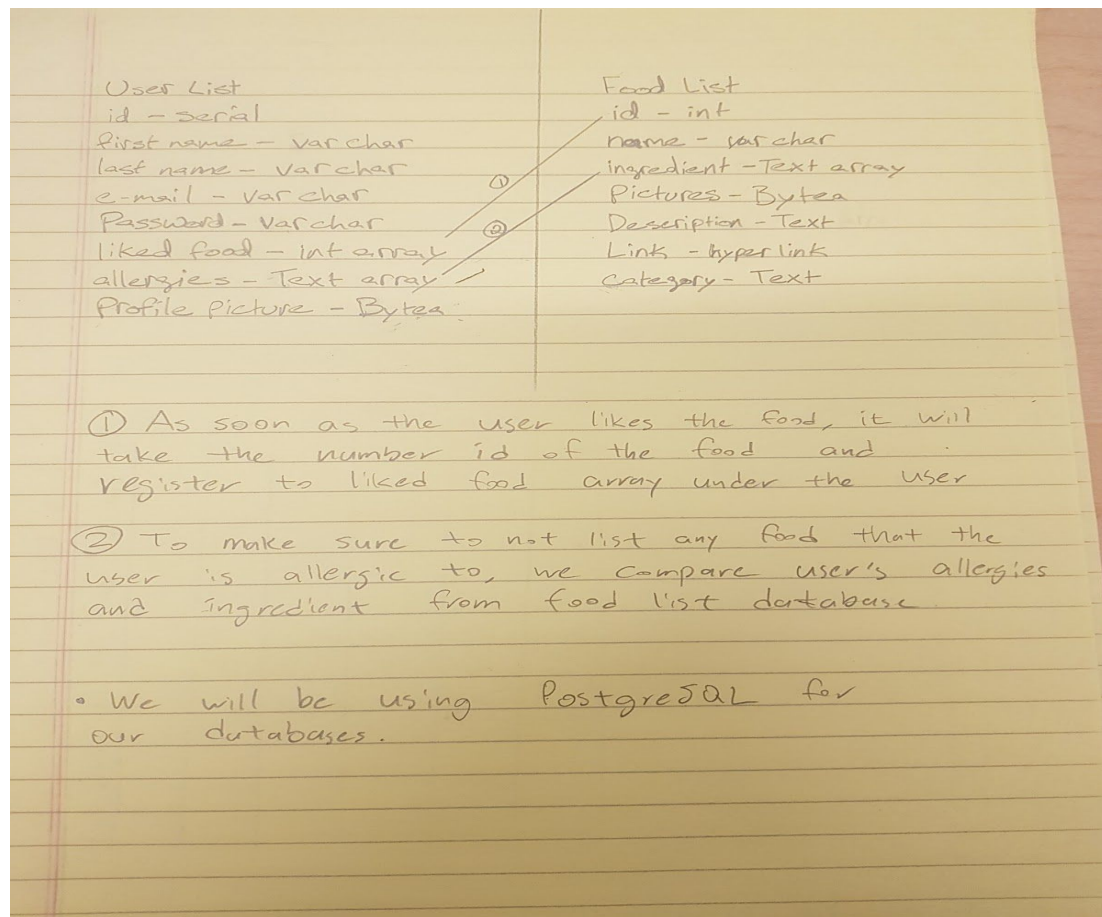 User List
id - serial
first name - varchar
last name - varchar
e-mail - varchar
Password - Varchar
liked food - int array
allergies - Text array
Profile Picture - Bytea
①
②
Food List
id - int
name - varchar
ingredient - Text array
Pictures - Bytea
Description - Text
Link - hyperlink
Category - Text
① As soon as the user likes the food, it will
take the number id of the food and
register to liked food array under the user
② To make sure to not list any food that the
user is allergic to, we compare user's allergies
and ingredient from food list database
• We will be using PostgreSQL for
our databases.